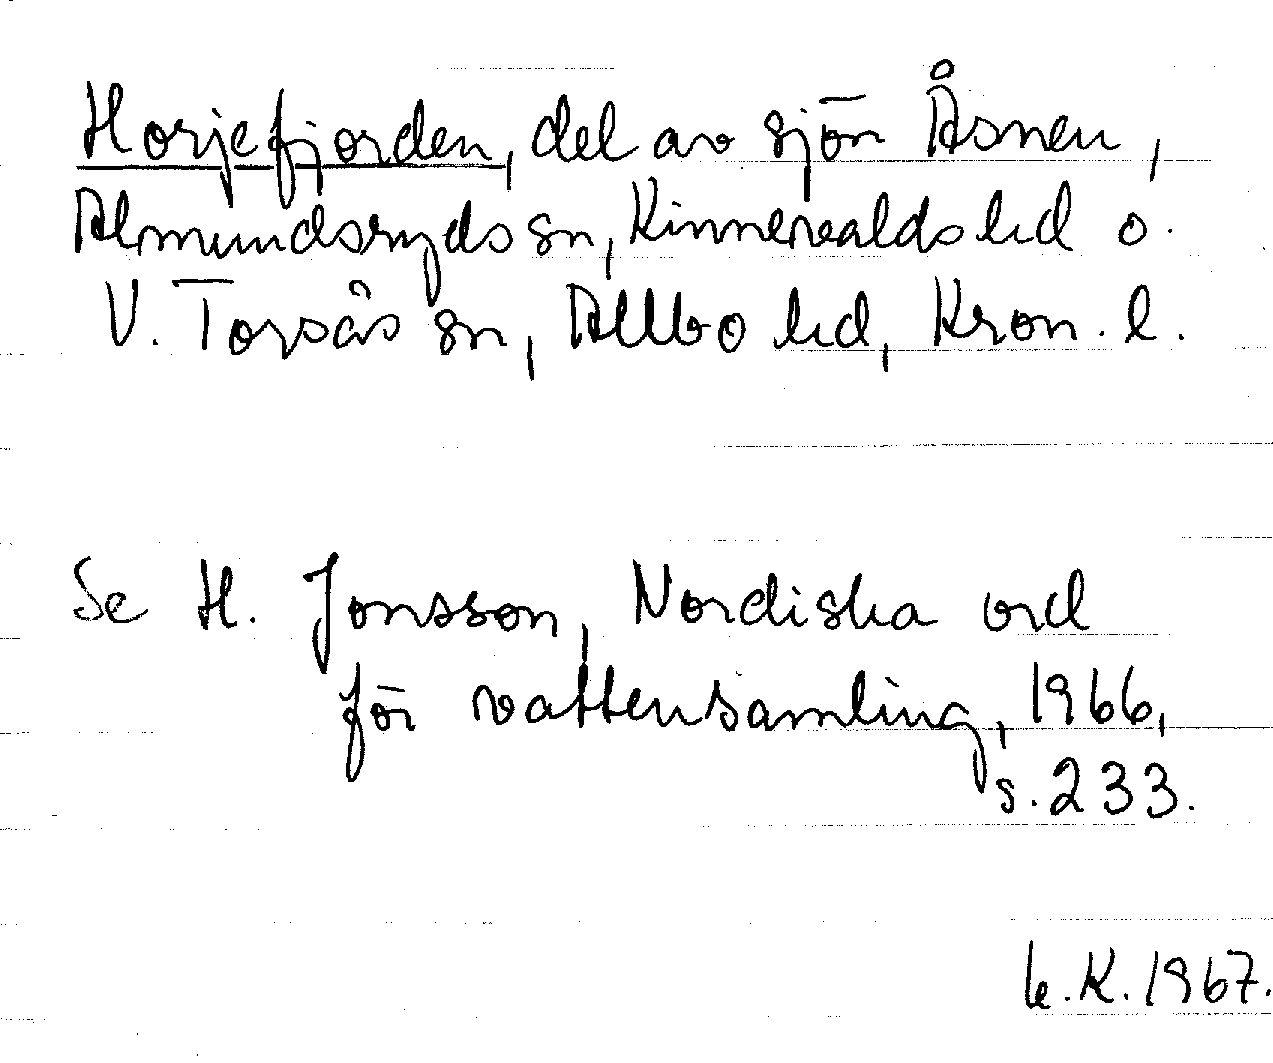 Horjefjorden, del av sjön Åsnen,
Almundsryds sn, Kinnevalds hd o.
V. Torsås sn, Allbo hd, Kron. l.
Se H. Jonsson, Nordiska ord
för vattensamling, 1966,
s. 233.
K. 1967.